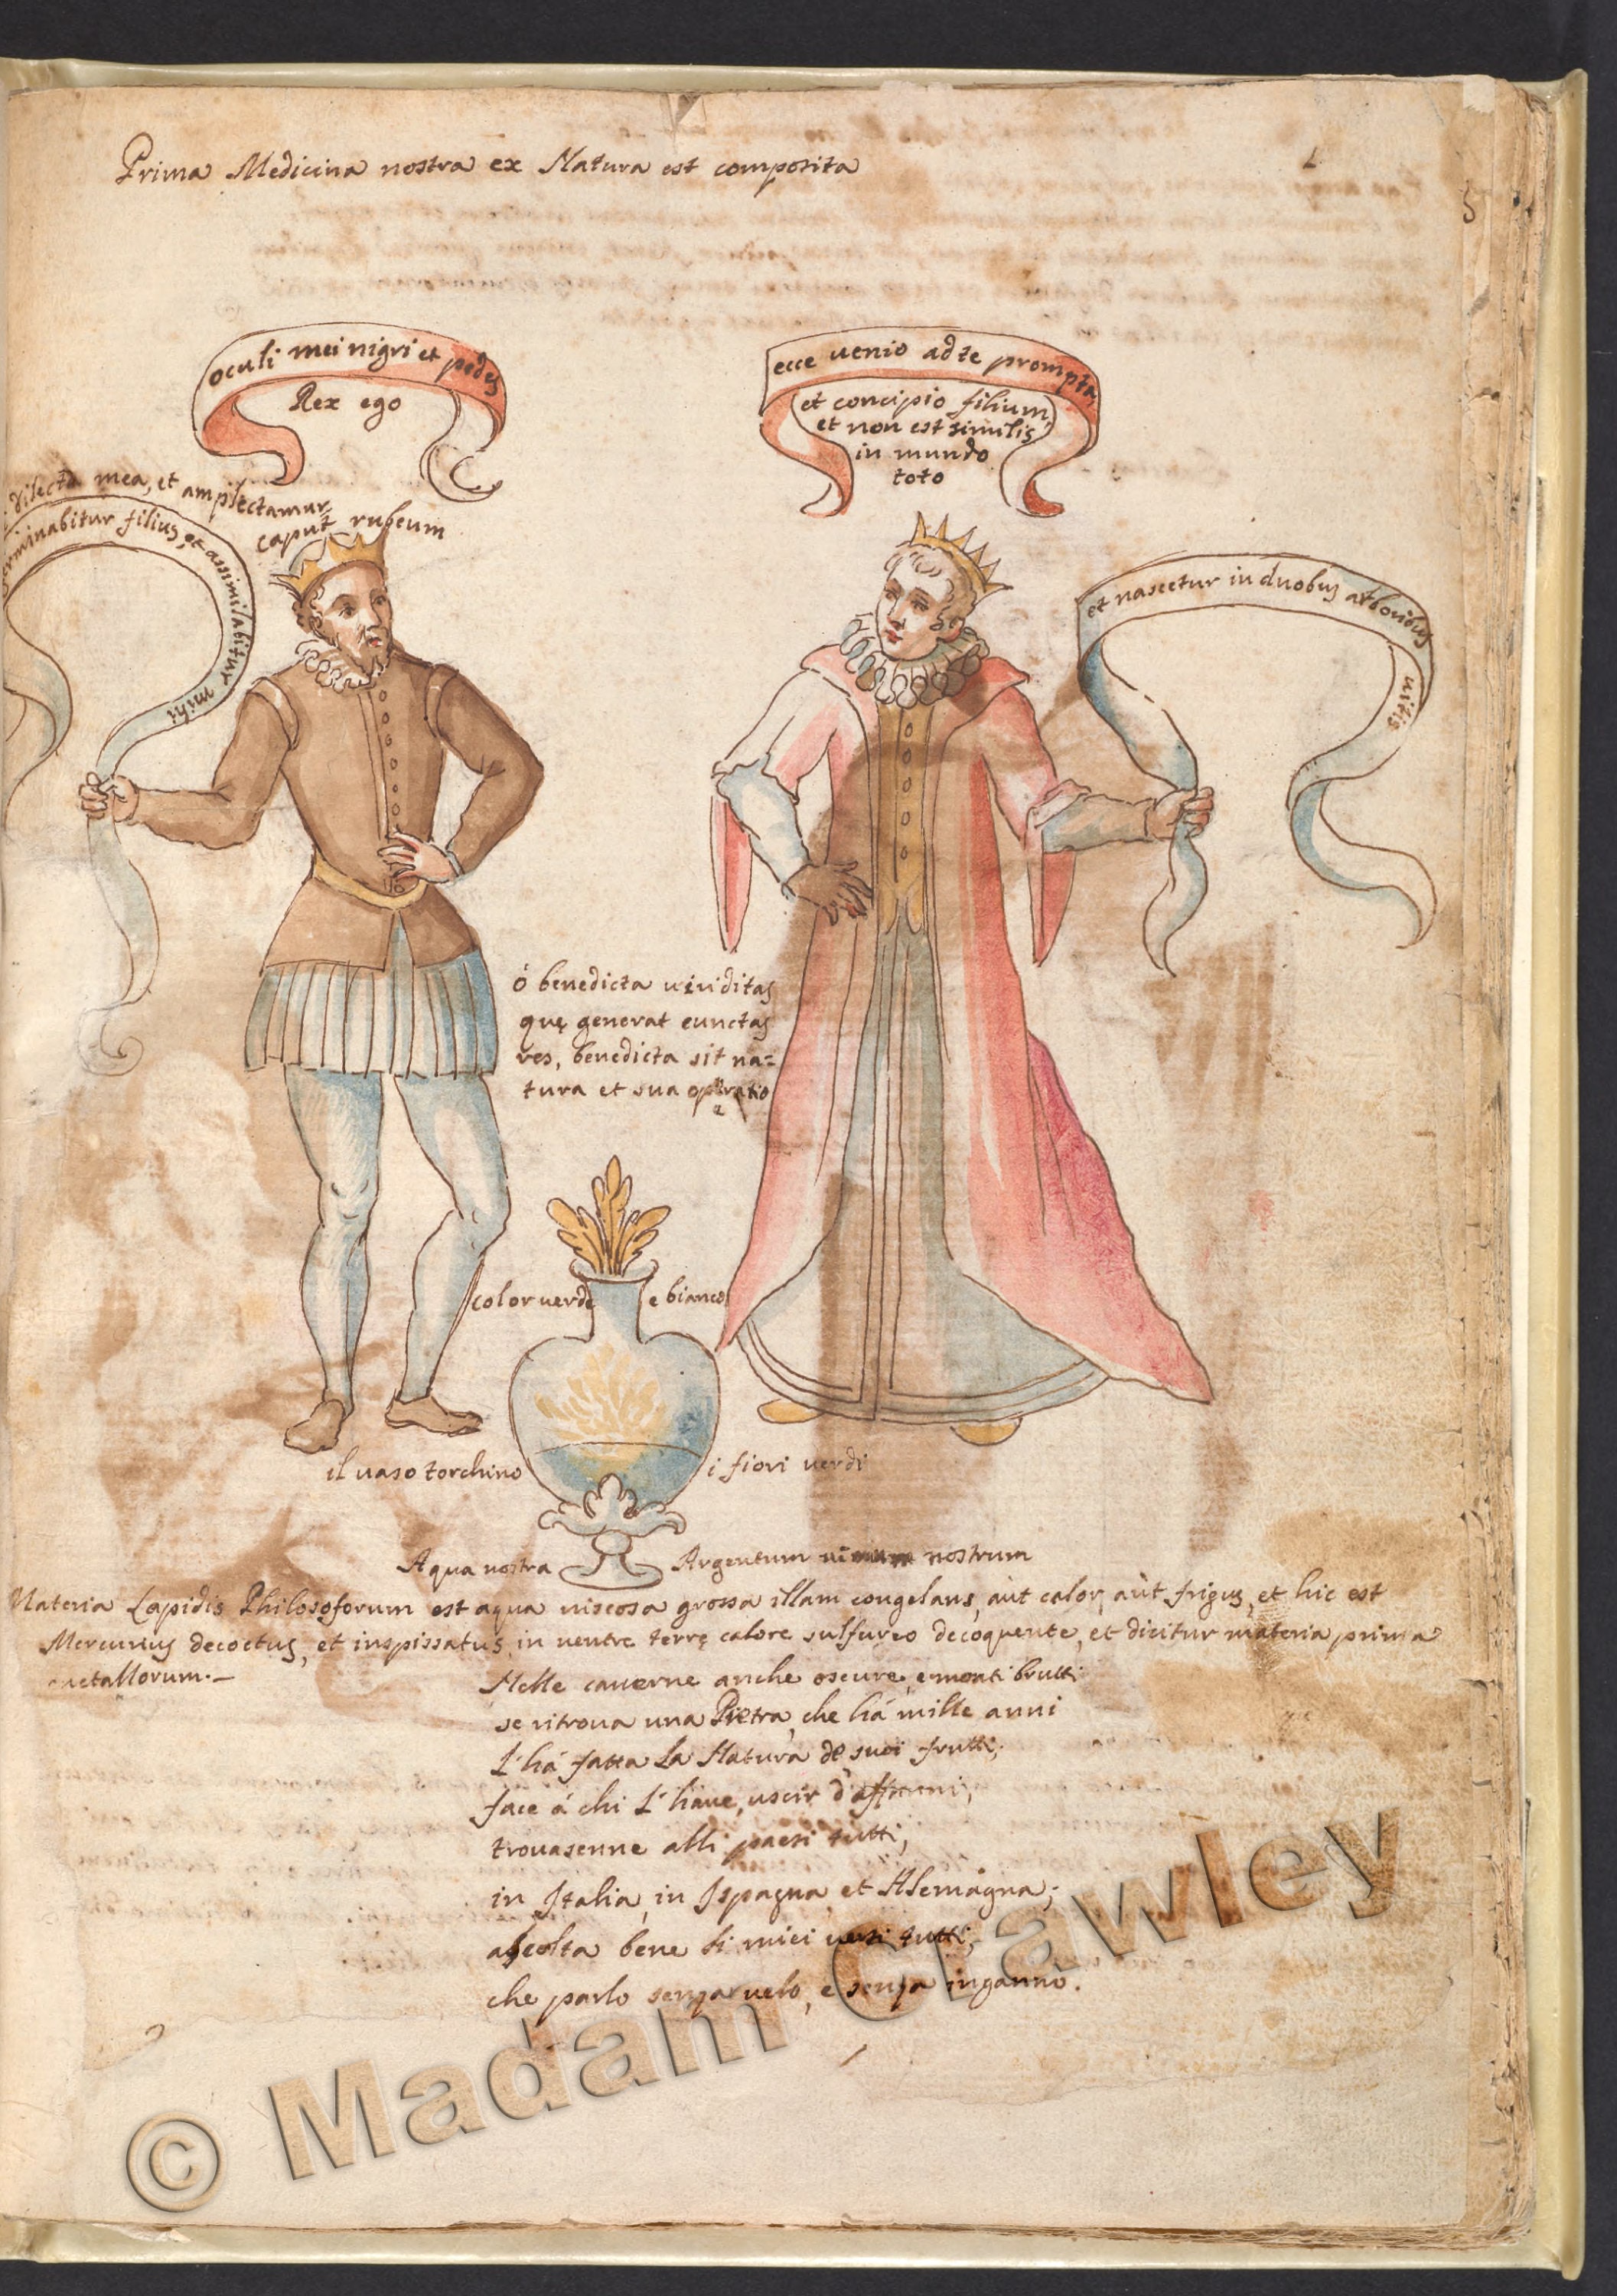 Prima Medicina nostra ex Natura est composita
5
oculi mei nigri et pedes
Rex ego
ecce uenio ad te prompta,
et concipio filium,
et non est similis
in mundo
toto
dilecta mea, et amplectamur
filius, et assimilabitur mihi
caput rubeum
et nascetur in duobus arboribus
uitis
ó benedicta uiriditas
quę generat cunctas
res, benedicta sit na=
tura et sua operatio
color uerde e bianco
il uaso torchino i fiori uerdi
Aqua nostra Argentum uiuum nostrum
Materia Lapidis Philosoforum est aqua uiscosa grossa illam congelans, aùt calor, aùt frigus, et hic est
Mercurius decoctus, et inspissatus in uentre terrę calore sulfureo decoquente, et dicitur materia prima
metallorum.—
Nelle cauerne anche oscure, e monti brutti
se ritroua una Pietra, che há mille anni
L'há fatta La Natura de suoi frutti;
face á chi L'haue, uscir d'affanni,
trouasenne alli paesi tutti,
in Italia, in Ispagna, et Alemagna;
ascolta bene li miei uersi tutti,
che parlo senza uelo, e senza inganno.
© Madam Crawley